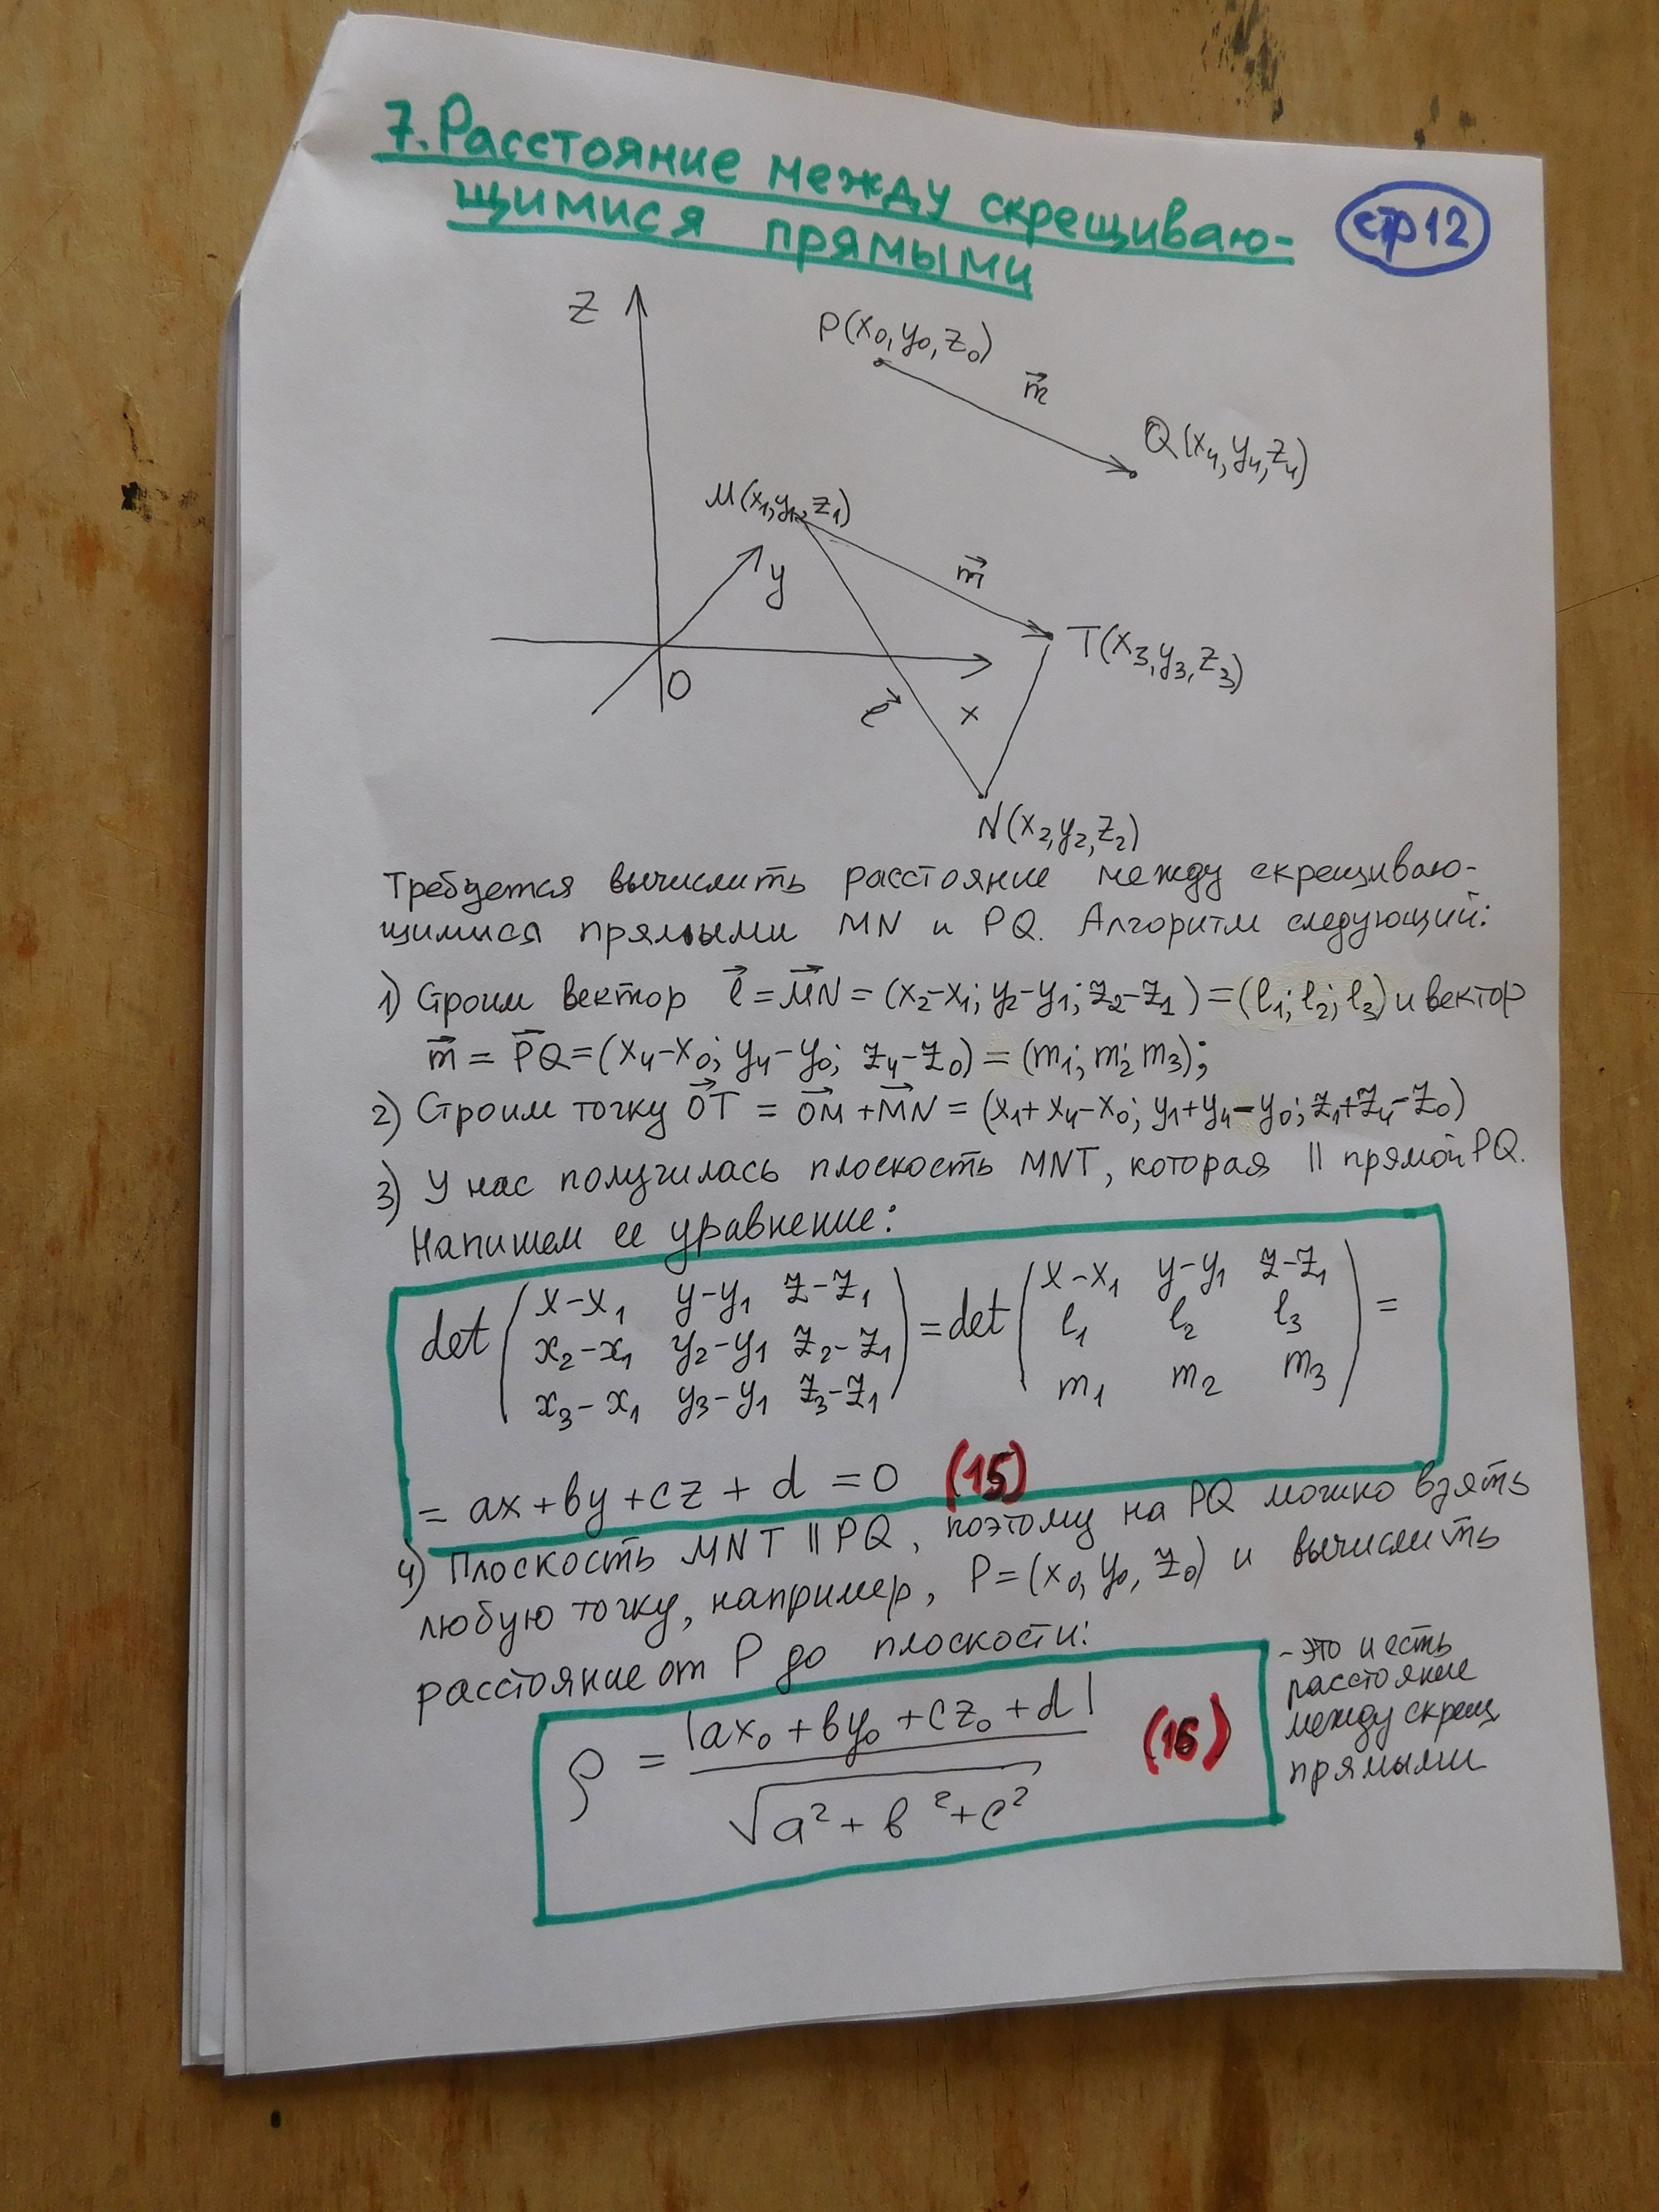 7. Расстояние между скрещиваю-
щимися прямыми
стр 12
z
P(x₀, y₀, z₀)
m⃗
Q(x₄, y₄, z₄)
M(x₁, y₁, z₁)
y
m⃗
T(x₃, y₃, z₃)
O
l⃗
x
N(x₂, y₂, z₂)
Требуется вычислить расстояние между скрещиваю-
щимися прямыми MN и PQ. Алгоритм следующий:
1) Строим вектор l⃗ = M⃗N = (x₂-x₁; y₂-y₁; z₂-z₁) = (l₁; l₂; l₃) и вектор
m⃗ = P⃗Q = (x₄-x₀; y₄-y₀; z₄-z₀) = (m₁; m₂ m₃);
2) Строим точку O⃗T = O⃗M + M⃗N = (x₁+x₄-x₀; y₁+y₄-y₀; z₁+z₄-z₀)
3) У нас получилась плоскость MNT, которая || прямой PQ.
Напишем ее уравнение:
det ( x-x₁ y-y₁ z-z₁ ) = det ( x-x₁ y-y₁ z-z₁ ) =
x₂-x₁ y₂-y₁ z₂-z₁ l₁ l₂ l₃
x₃-x₁ y₃-y₁ z₃-z₁ m₁ m₂ m₃
= ax+by+cz+d = 0 (15)
4) Плоскость MNT || PQ, поэтому на PQ можно взять
любую точку, например, P=(x₀, y₀, z₀) и вычислить
расстояние от P до плоскости:
ρ = |ax₀+by₀+cz₀+d| / √a²+b²+c² (16)
- это и есть
расстояние
между скрещ
прямыми